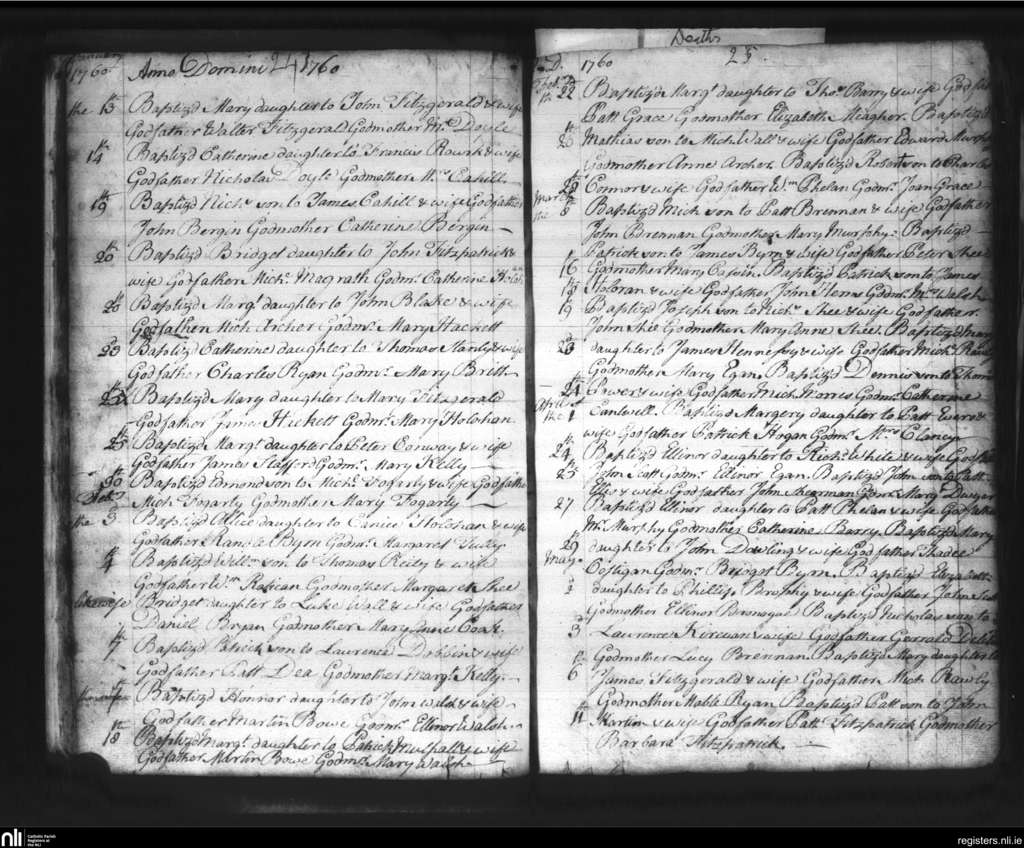 January
1760 Anno Domini 24 1760
the 13 Baptiz'd Mary daughter to John Fitzgerald & wife
Godfather Walter Fitzgerald Godmother Mrs Doyle
14th Baptiz'd Catherine daughter to Francis Rourk & wife
Godfather Nicholas Doyle Godmother Mrs Cahill
19th Baptiz'd Richd son to James Cahill & wife Godfather
John Bergin Godmother Catherine Bergin
20th Baptiz'd Bridget daughter to John Fitzpatrick &
wife Godfather Michl Magrath Godmr Catherine
20th Baptiz'd Margt daughter to John Blake & wife
Godfather Mich Archer Godmr Mary Hackett
23d Baptiz'd Catherine daughter to Thomas Hanly & wife
Godfather Charles Ryan Godmr Mary Brett
Baptiz'd Mary daughter to Mary Fitzgerald
Godfather James Hickett Godmr Mary Holohan
25th Baptiz'd Margt daughter to Peter Conway & wife
Godfather James Stafford Godmr Mary Kelly
30th Baptiz'd Edmond son to Michl Fogarty & wife Godfather
Mich Fogarty Godmother Mary Fogarty
the 3d Baptiz'd Allice daughter to Canice Holohan & wife
Godfather Byrn Godmr Margaret Tully
4th Baptiz'd Willm son to Thomas Reily & wife
Godfather Wm Godmother Margaret Shee
likewise Bridget daughter to Luke Wall & wife Godfather
Daniel Bryan Godmother Mary Anne Coak
7th Baptiz'd Patrick son to Laurence Dobbin & wife
Godfather Patt Dea Godmother Margt Kelly
likewise Baptiz'd Honnor daughter to John Walsh & wife
Godfather Martin Bowe Godmr Ellinor Walsh
18th Baptiz'd Margt daughter to Patrick Mulhall & wife
Godfather Martin Bowe Godmr Mary Walsh
Deaths
A.D. 1760 25
Feb.
the 22d Baptiz'd Margt daughter to Thos Barry & wife Godfat
Patt Grace Godmother Elizabeth Meagher. Baptiz'd
26th Mathias son to Mich Wall & wife Godfather Edward Murphy
Godmother Anne Archer Baptiz'd Robert son to Charles
28th Connor & wife Godfather Wm Phelan Godmr Joan Grace
March
the 8 Baptiz'd Mich son to Patt Brennan & wife Godfather
John Brennan Godmother Mary Murphy. Baptiz'd
Patrick son to James Byrn & wife Godfather Peter Shee
16 Godmother Mary Cassin. Baptiz'd Patrick son to James
19th Holoran & wife Godfather John Herns Godmr Mrs Walsh
19 Baptiz'd Joseph son to Richd Shee & wife Godfather
John Shee Godmother Mary Anne Shee. Baptiz'd Mary
23d daughter to James Hennessy & wife Godfather Michl
Godmother Mary Egan. Baptiz'd Dennis son to Thom
24th Power & wife Godfather Mich Morres Godmr Catherine
April
the 1 Cantwell. Baptiz'd Margery daughter to Patt &
wife Godfather Patrick Hogan Godmr Mrs Clancy
24th Baptiz'd Ellinor daughter to Richd White & wife Godfat
25th John Scott Godmr Ellinor Egan. Baptiz'd John son to Patt
Ellis & wife Godfather John Shearman Godmr Mary Dwyer
27 Baptiz'd Ellinor daughter to Patt Phelan & wife Godfather
Mr Murphy Godmother Catherine Barry. Baptiz'd Mary
29th daughter to John Dowling & wife Godfather Thadee
May Costigan Godmr Bridget Byrn. Baptiz'd Elizabeth
2 daughter to Phillip Brophy & wife Godfather John
Godmother Ellinor Bronogue Baptiz'd Nicholas son to
3d Laurence Kirwan & wife Godfather Gerrald
Godmother Lucy Brennan. Baptiz'd Mary daughter to
6 James Fitzgerald & wife Godfather Mich Rawly
Godmother Mable Ryan Baptiz'd Patt son to John
11th Martin & wife Godfather Patt Fitzpatrick Godmother
Barbara Fitzpatrick.
nli Catholic Parish
Registers at
the NLI
registers.nli.ie